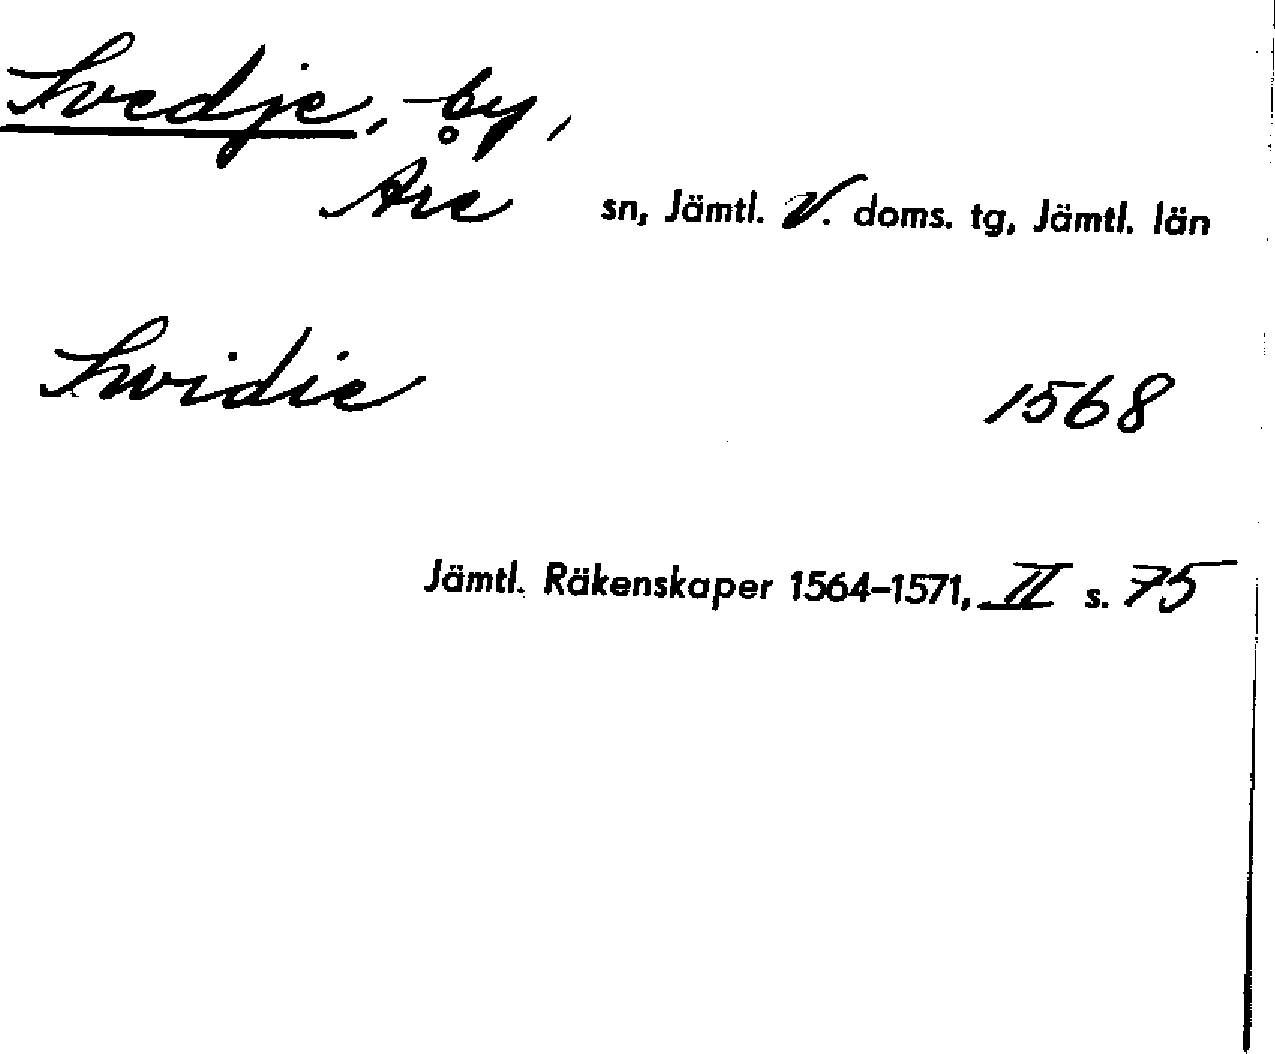 Svedje, by,
Åre sn, Jämtl. V. doms. tg, Jämtl. län
Swidie 1568
Jämtl. Räkenskaper 1564-1571, II s. 75